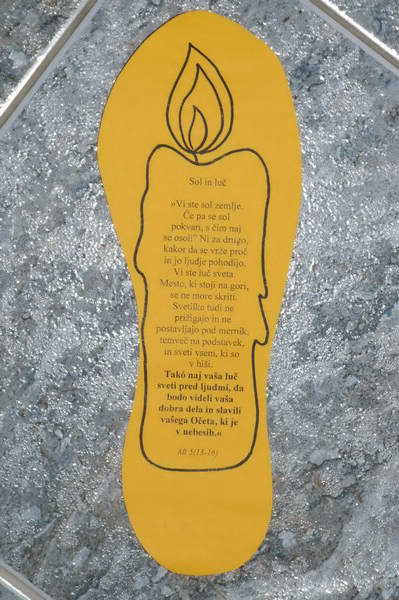 Sol in luč
»Vi ste sol zemlje.
Če pa se sol
pokvari, s čim naj
se osoli? Ni za drugo,
kakor da se vrže proč
in jo ljudje pohodijo.
Vi ste luč sveta.
Mesto, ki stoji na gori,
se ne more skriti.
Svetilke tudi ne
prižigajo in ne
postavljajo pod mernik,
temveč na podstavek,
in sveti vsem, ki so
v hiši.
Takó naj vaša luč
sveti pred ljudmi, da
bodo videli vaša
dobra dela in slavili
vašega Očeta, ki je
v nebesih.«
Mt 5(13-16)